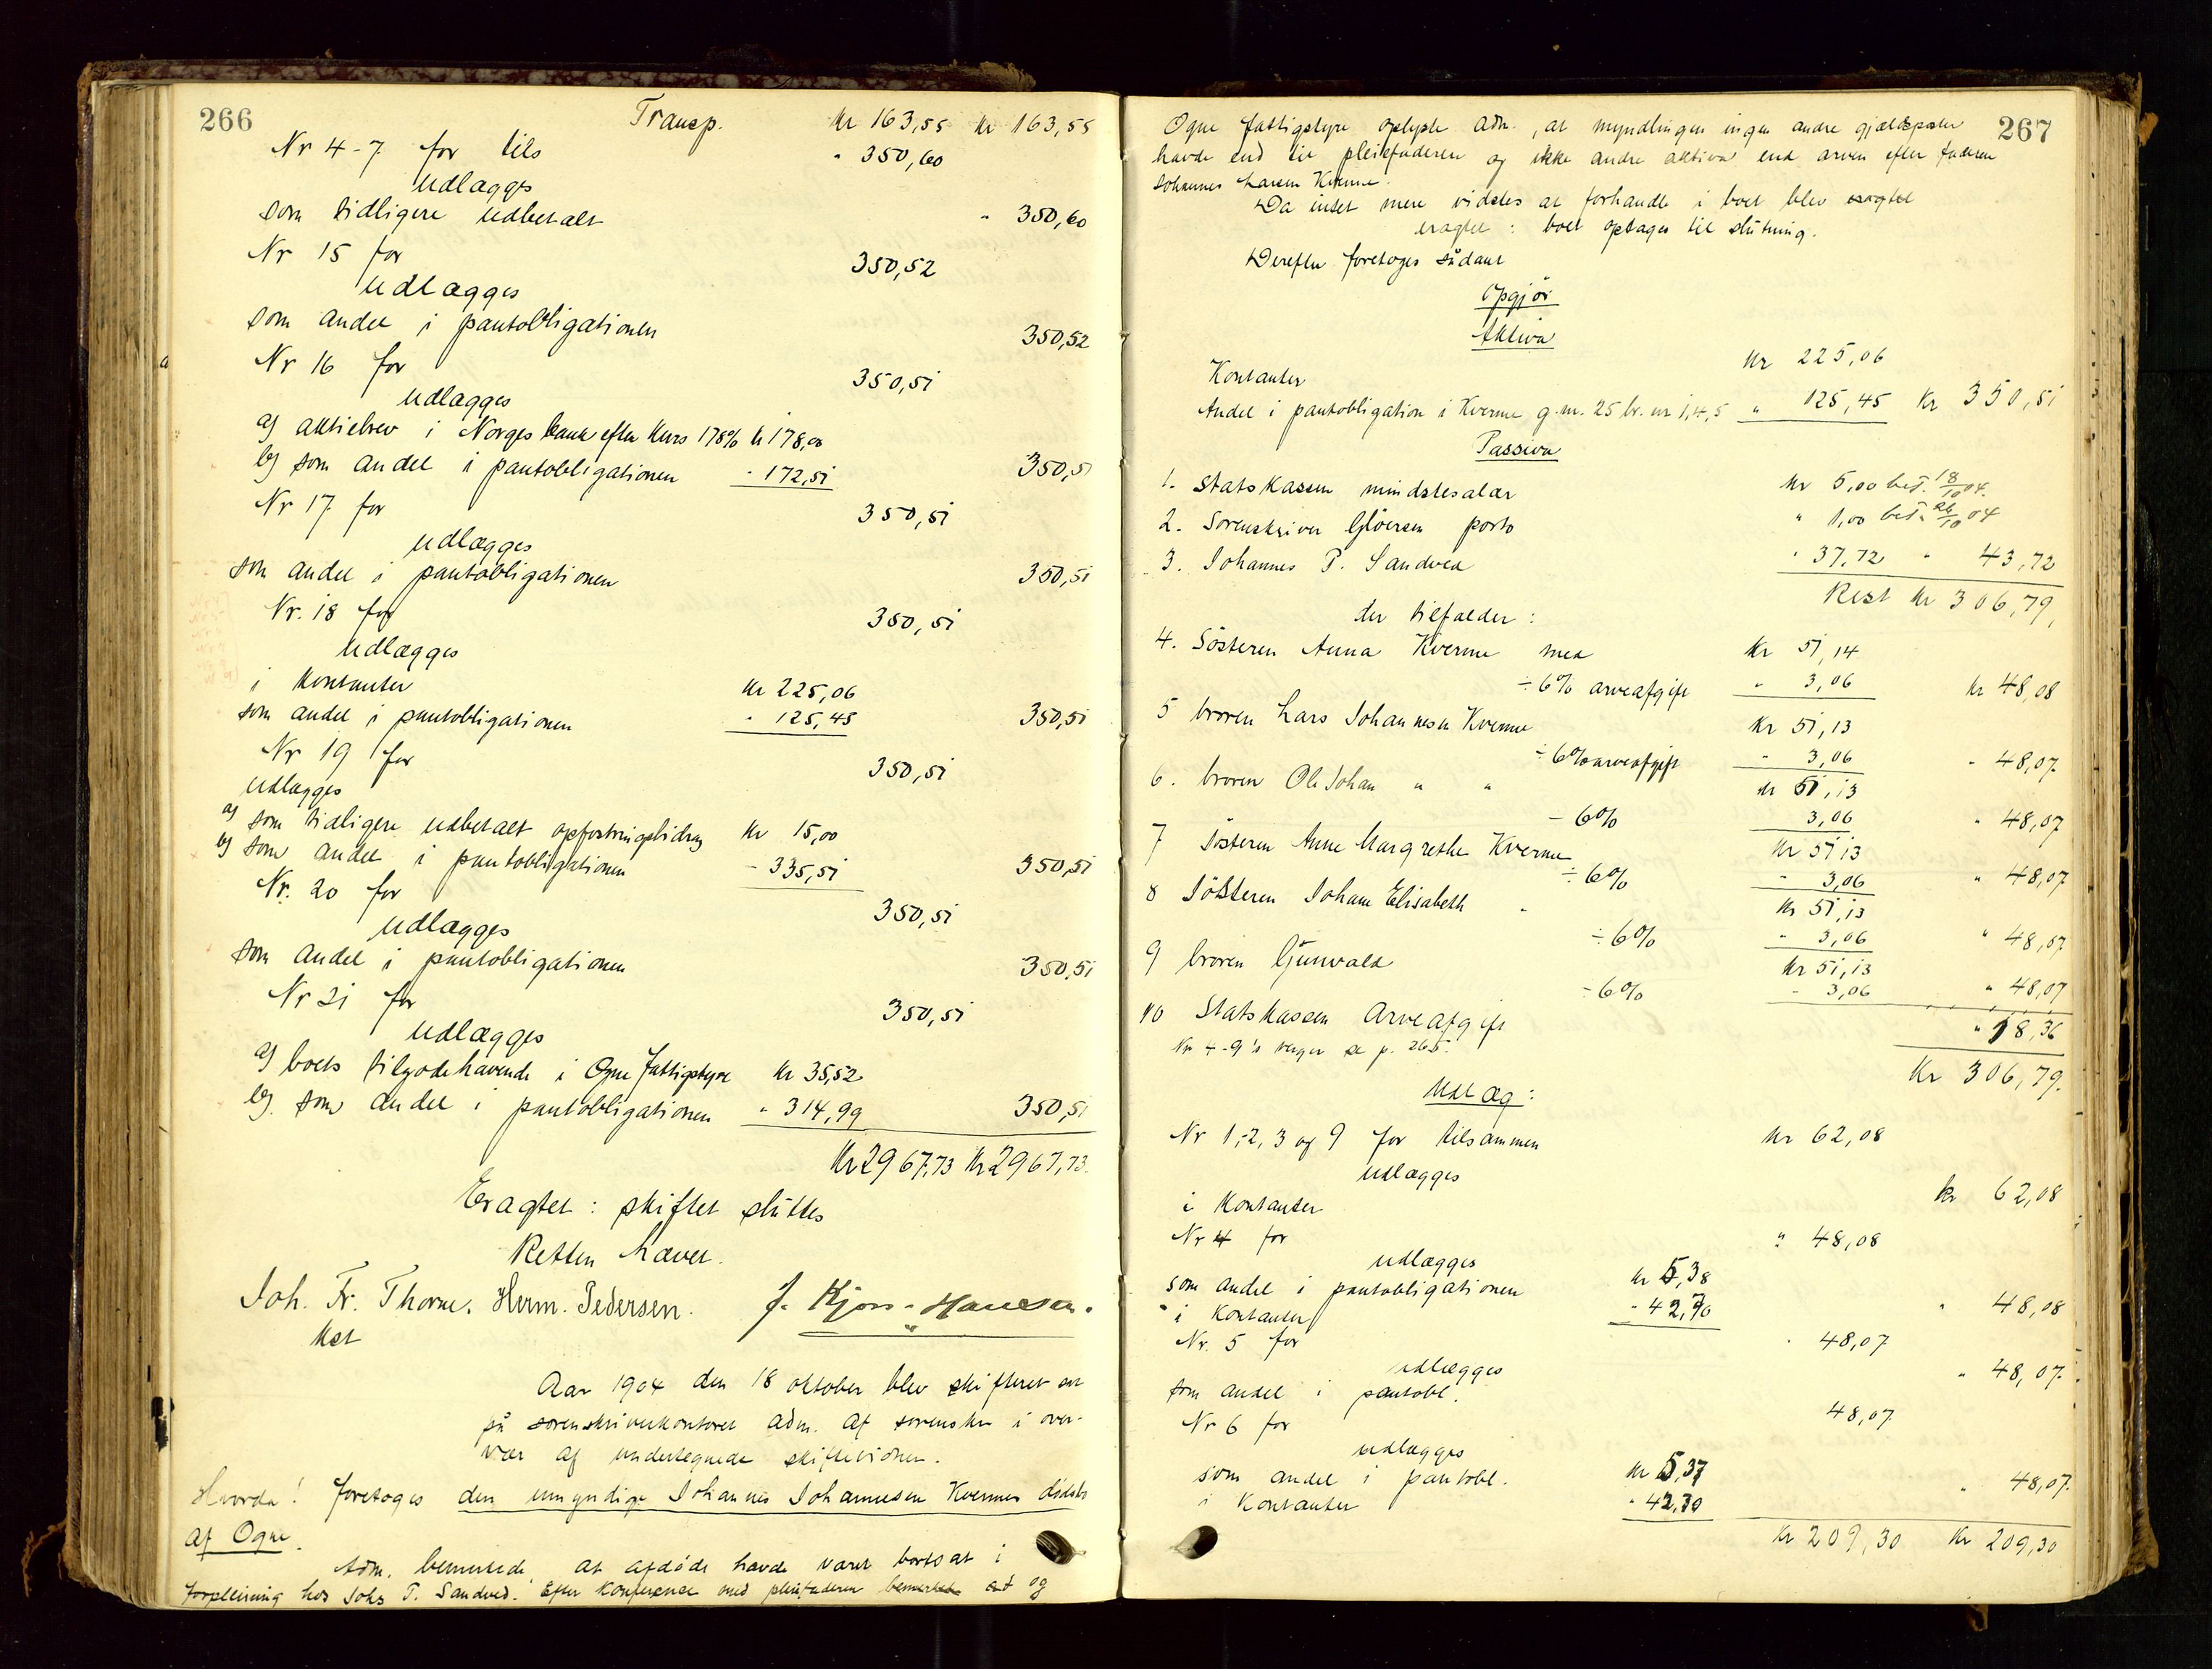 266
Transp. Kr 163,55 Kr 163,55
Nr 4-7 for tils " 350,60
udlægges
som tidligere udbetalt " 350,60
Nr 15 for 350,52
udlægges
som andel i pantobligationen 350,52
Nr 16 for 350,51
udlægges
a) aktiebrev i Norges bank efter Kurs 178% Kr 178,00
b) som andel i pantobligationen - 172,51 350,51
Nr 17 for 350,51
udlægges
som andel i pantobligationen 350,51
Nr. 18 for 350,51
udlægges
i Kontanter Kr 225,06
som andel i pantobligationen " 125,45 350,51
Nr 19 for 350,51
udlægges
a) som tidligere udbetalt opfostringsbidrag Kr 15,00
b) som andel i pantobligationen - 335,51 350,51
Nr. 20 for 350,51
udlægges
som andel i pantobligationen 350,51
Nr 21 for 350,51
udlægges
a) boets tilgodehavende i Ogne fattigstyre Kr 35,52
b) som andel i pantobligationen " 314,99 350,51
Kr 2967,73 Kr 2967,73.
Eragtet: skiftet sluttes
Retten hævet.
Joh. Fr. Thorne. Herm. Pedersen. J. Kjos-Hansen.
Kst
Aar 1904 den 18 oktober blev skifteret sat
på sorenskriverkontoret adm. af sorenskr i over-
vær af undertegnede skiftevidner.
Hvorda! foretoges den umyndige Johannes Johannesen Kvermes dødsbo
af Ogne.
Adm. bemerkede, at afdøde havde været bortsat i
forpleining hos Johs P. Sandved. Efter Konference med pleiefaderen bemerket at og
267
Ogne fattigstyre oplyste adm., at myndlingen ingen andre gjældsposter
havde end til pleiefaderen og ikke andre aktiva end arven efter faderen
Johannes Larsen Kverme.
Da intet mere vidstes at forhandle i boet blev eragtet
eragtet: boet optages til slutning.
Derefter foretoges sådant
Opgjør
Aktiva
Kontanter Kr 225,06
Andel i pantobligation i Kverme g.nr. 25 br. nr 1,4,5 " 125,45 Kr 350,51
Passiva
1. Statskassen mindstesalær Kr 5,00 bet. 18/10 04.
2. Sorenskriver Gløersen porto " 1,00 bet. 26/10 04
3. Johannes P. Sandved " 37,72 " 43,72
Rest Kr 306,79,
der tilfalder:
4. Søsteren Anna Kverme med Kr 51,14
÷ 6% arveafgift " 3,06 Kr 48,08
5 broren Lars Johannesen Kverme Kr 51,13
÷ 6% arveafgift " 3,06 " 48,07
6. broren Ole Johan " " Kr 51,13
- 6% 3,06 " 48,07
7 Søsteren Anne Margrethe Kverme Kr 51,13
÷ 6% " 3,06 " 48,07
8 Søsteren Johane Elisabeth " Kr 51,13
÷ 6% " 3,06 " 48,07
9 broren Gunvald Kr 51,13
÷ 6% - 3,06 " 48,07
10 Statskassen Arveafgift " 18,36
Nr 4-9's verger se p. 265. Kr 306,79.
Udlæg:
Nr 1,-2, 3 og 9 for tilsammen Kr 62,08
udlægges
i Kontanter Kr 62,08
Nr 4 for " 48,08
udlægges
som andel i pantobligationen Kr 5,38
" i Kontanter " 42,70 " 48,08
Nr. 5 for " 48,07
udlægges
som andel i pantobl. " 48,07.
Nr 6 for 48,07
udlægges
som andel i pantobl. Kr 5,37
i Kontanter " 42,70 " 48,07.
Kr 209,30 Kr 209,30